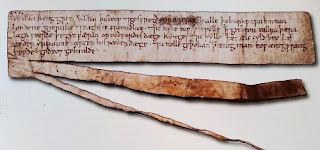 Willm kyng gret Willm bisceop 7 gosfregð portirefan 7 ealle þa burhƿaru binnan
londone frencisce 7 englisce freondlice 7 ic kyðe eoƿ þ ic ƿylle þ get beon eallra þæra
laga ƿeorðe þe gyt ƿæran on eadƿerdes dæge kynges 7 ic ƿylle þ ælc cyld beo his f
æder yrfnume æfter his fæder dæge 7 ic nelle geþolian þ ænig man eoƿ ænig ƿrang
beode god eoƿ gehealde